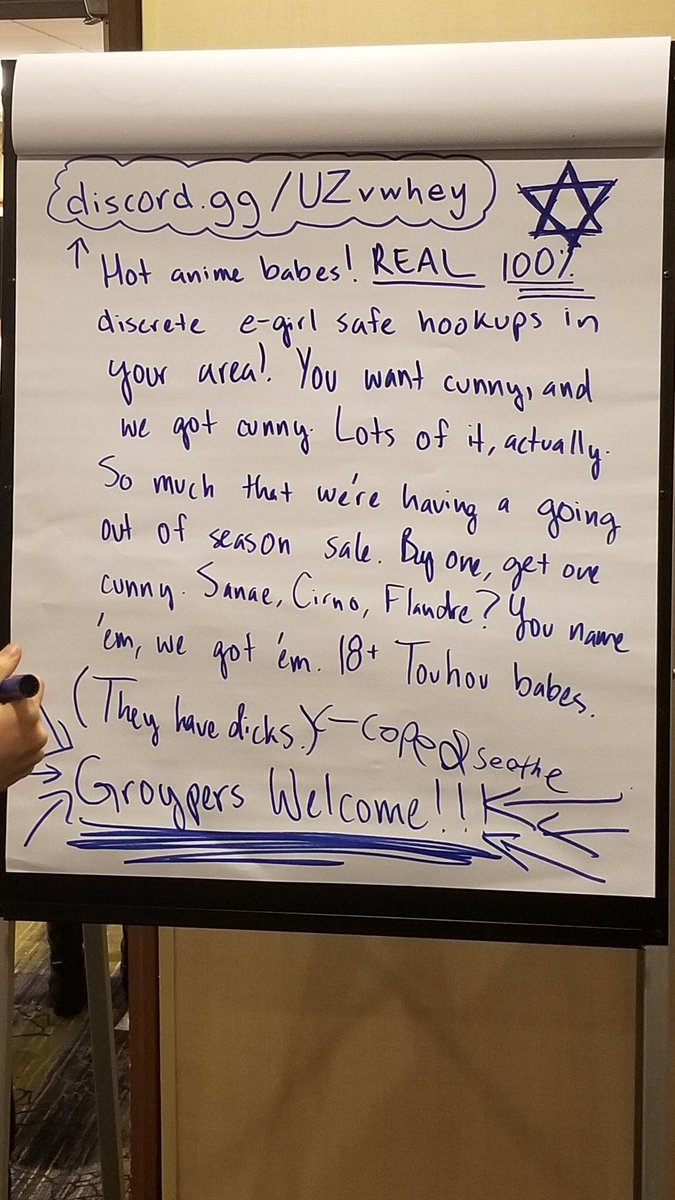 discord.gg/UZvwhey
↑ Hot anime babes! REAL 100%
discrete e-girl safe hookups in
your area! You want cunny, and
we got cunny. Lots of it, actually.
So much that we're having a going
out of season sale. Buy one, get one
cunny. Sanae, Cirno, Flandre? You name
'em, we got 'em. 18+ Touhou babes.
(They have dicks.) ← cope & seethe
Groypers Welcome!!